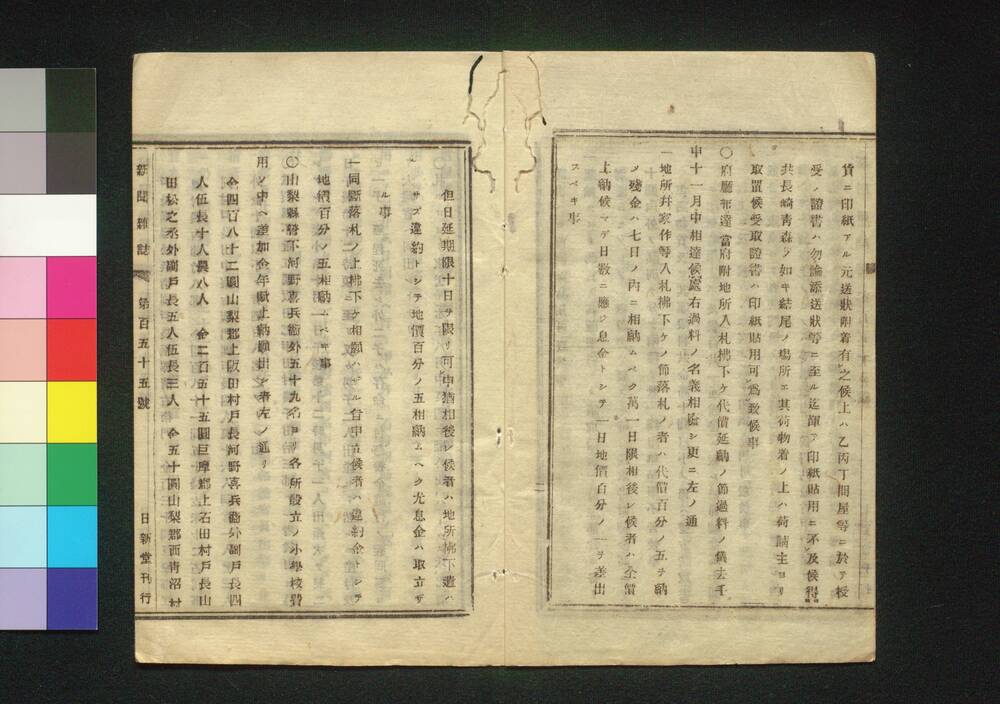 貨ニ印紙アル元送狀附着有之候上ハ乙丙丁問屋等ニ於テ授
受ノ證書ハ勿論添送狀等ニ至ル迄渾テ印紙貼用ニ不及候得
共長崎靑森ノ如キ結尾ノ場所エ其荷物着ノ上ハ荷請主ヨリ
取置候受取證書ハ印紙貼用可爲致候事
〇府廳布達當府附地所入札拂下ケ代價延納ノ節過料ノ儀去壬
申十一月中相達候處右過料ノ名義相廢シ更ニ左ノ通
一地所幷家作等入札拂下ケノ節落札ノ者ハ代價百分ノ五ヲ納
メ殘金ハ七日ノ內ニ相納ムベク萬一日限相後シ候者ハ全價
上納候マデ日數ニ應ジ息金トシテ一日地價百分ノ一ヲ差出
スベキ事
但日延期限十日ヲ限リ可申猶相後レ候者ハ地所拂下遣ハ
サズ違約トシテ地價百分ノ五相納ムヘク尤息金ハ取立ザ
ル事
一同斷落札ノ上拂下ケ相願ハザル旨申立候者ハ違約金トシテ
地價百分ノ五相納ムベキ事
〇山梨縣管下河野喜兵衞外五十九名ヨリ各所設立ノ小學校費
用ノ中ヘ差加金年賦上納願出シ者左ノ通リ
金四百八十二圓山梨郡上阪田村戶長河野喜兵衞外副戶長四
人伍長十人農八人 金二百五十五圓巨摩郡上石田村戶長山
田松之丞外副戶長五人伍長三人 金五十圓山梨郡西靑沼村
新聞雜誌 第百五十五號 日新堂刊行